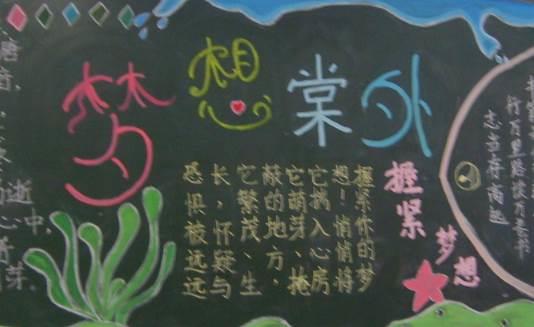 梦想棠外
行万里路读万卷书
志当存高远
握紧
梦想
握紧你的梦
想！悄悄将
它 入心房
它萌芽、掩
蔽的地方，
它繁茂、生
长，怀疑与
恐惧被远远
逝
中，
芽